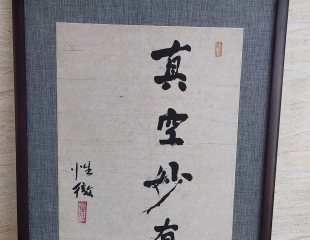 真空妙有
性徹